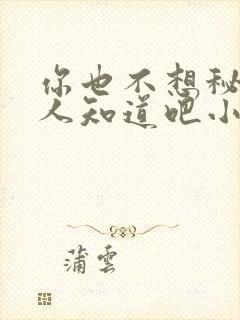 你也不想秘
人知道吧小
蒲雲